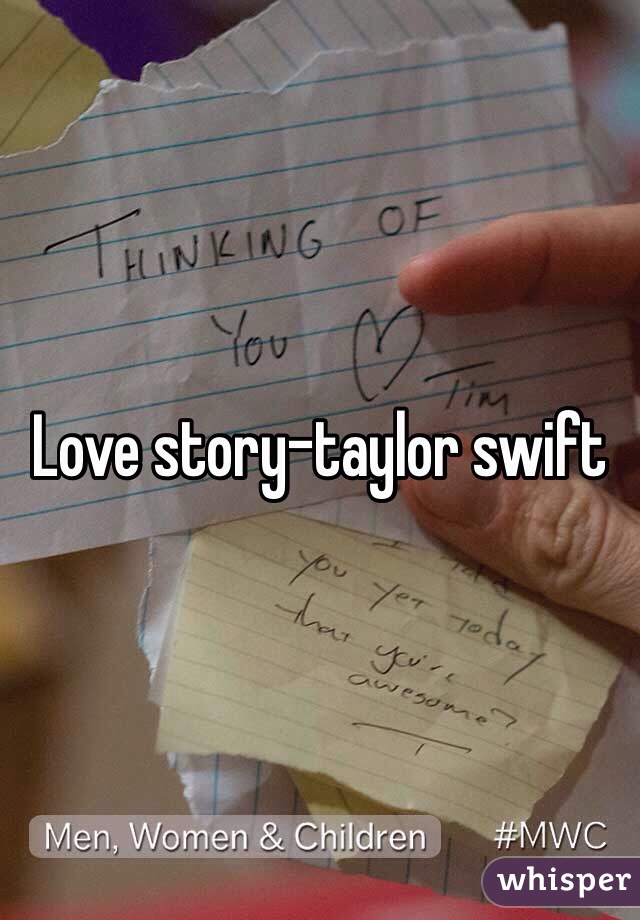 THINKING OF
YOU
Tim
Love story-taylor swift
I
you yet today
that you're
awesome?
T
Men, Women & Children #MWC
whisper